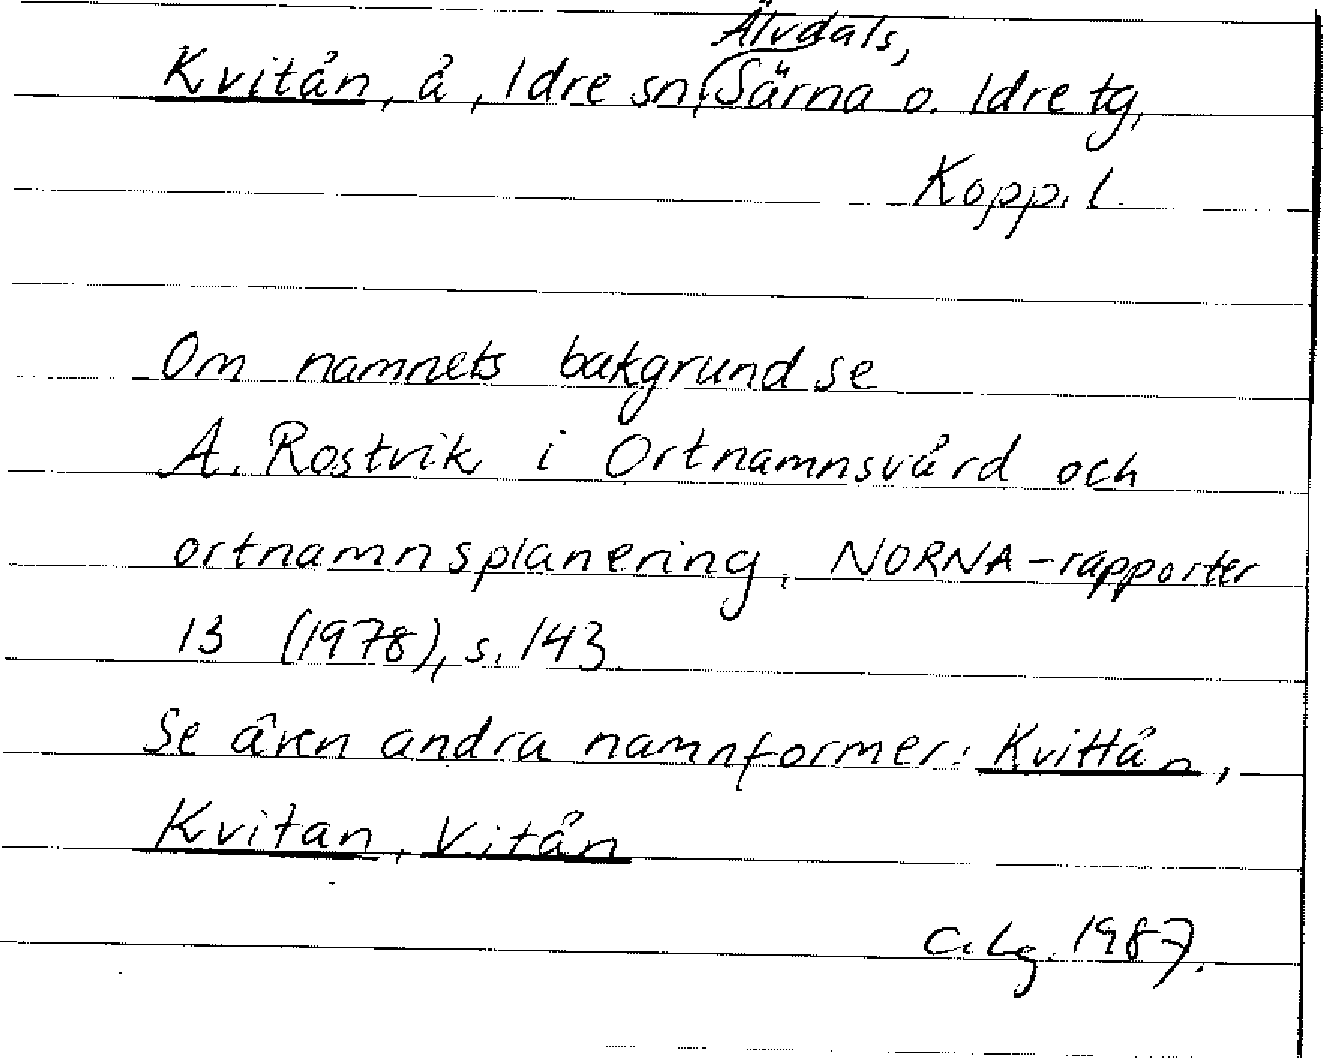 Älvdals,
Kvitån, å, Idre sn, Särna o. Idre tg,
Kopp. l.
Om namnets bakgrund se
A. Rostvik i Ortnamnsvård och
ortnamnsplanering, NORNA-rapporter
13 (1978), s. 143.
Se även andra namnformer: Kvittån,
Kvitan, Vitån
C. Lg. 1987.